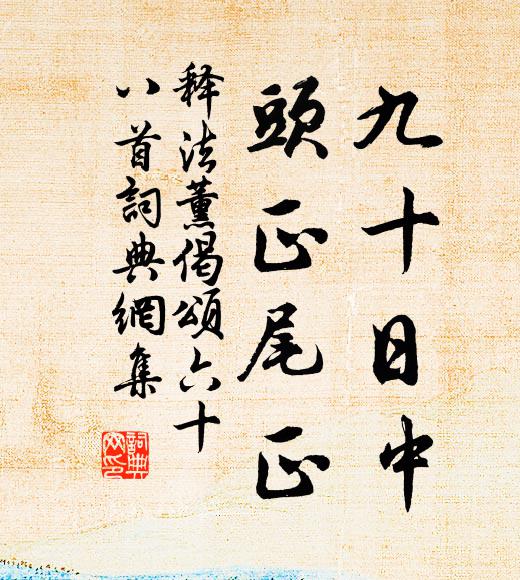 九十日中
頭正尾正
释法薰偈頌六十
八首詞典網集
詞典
网印